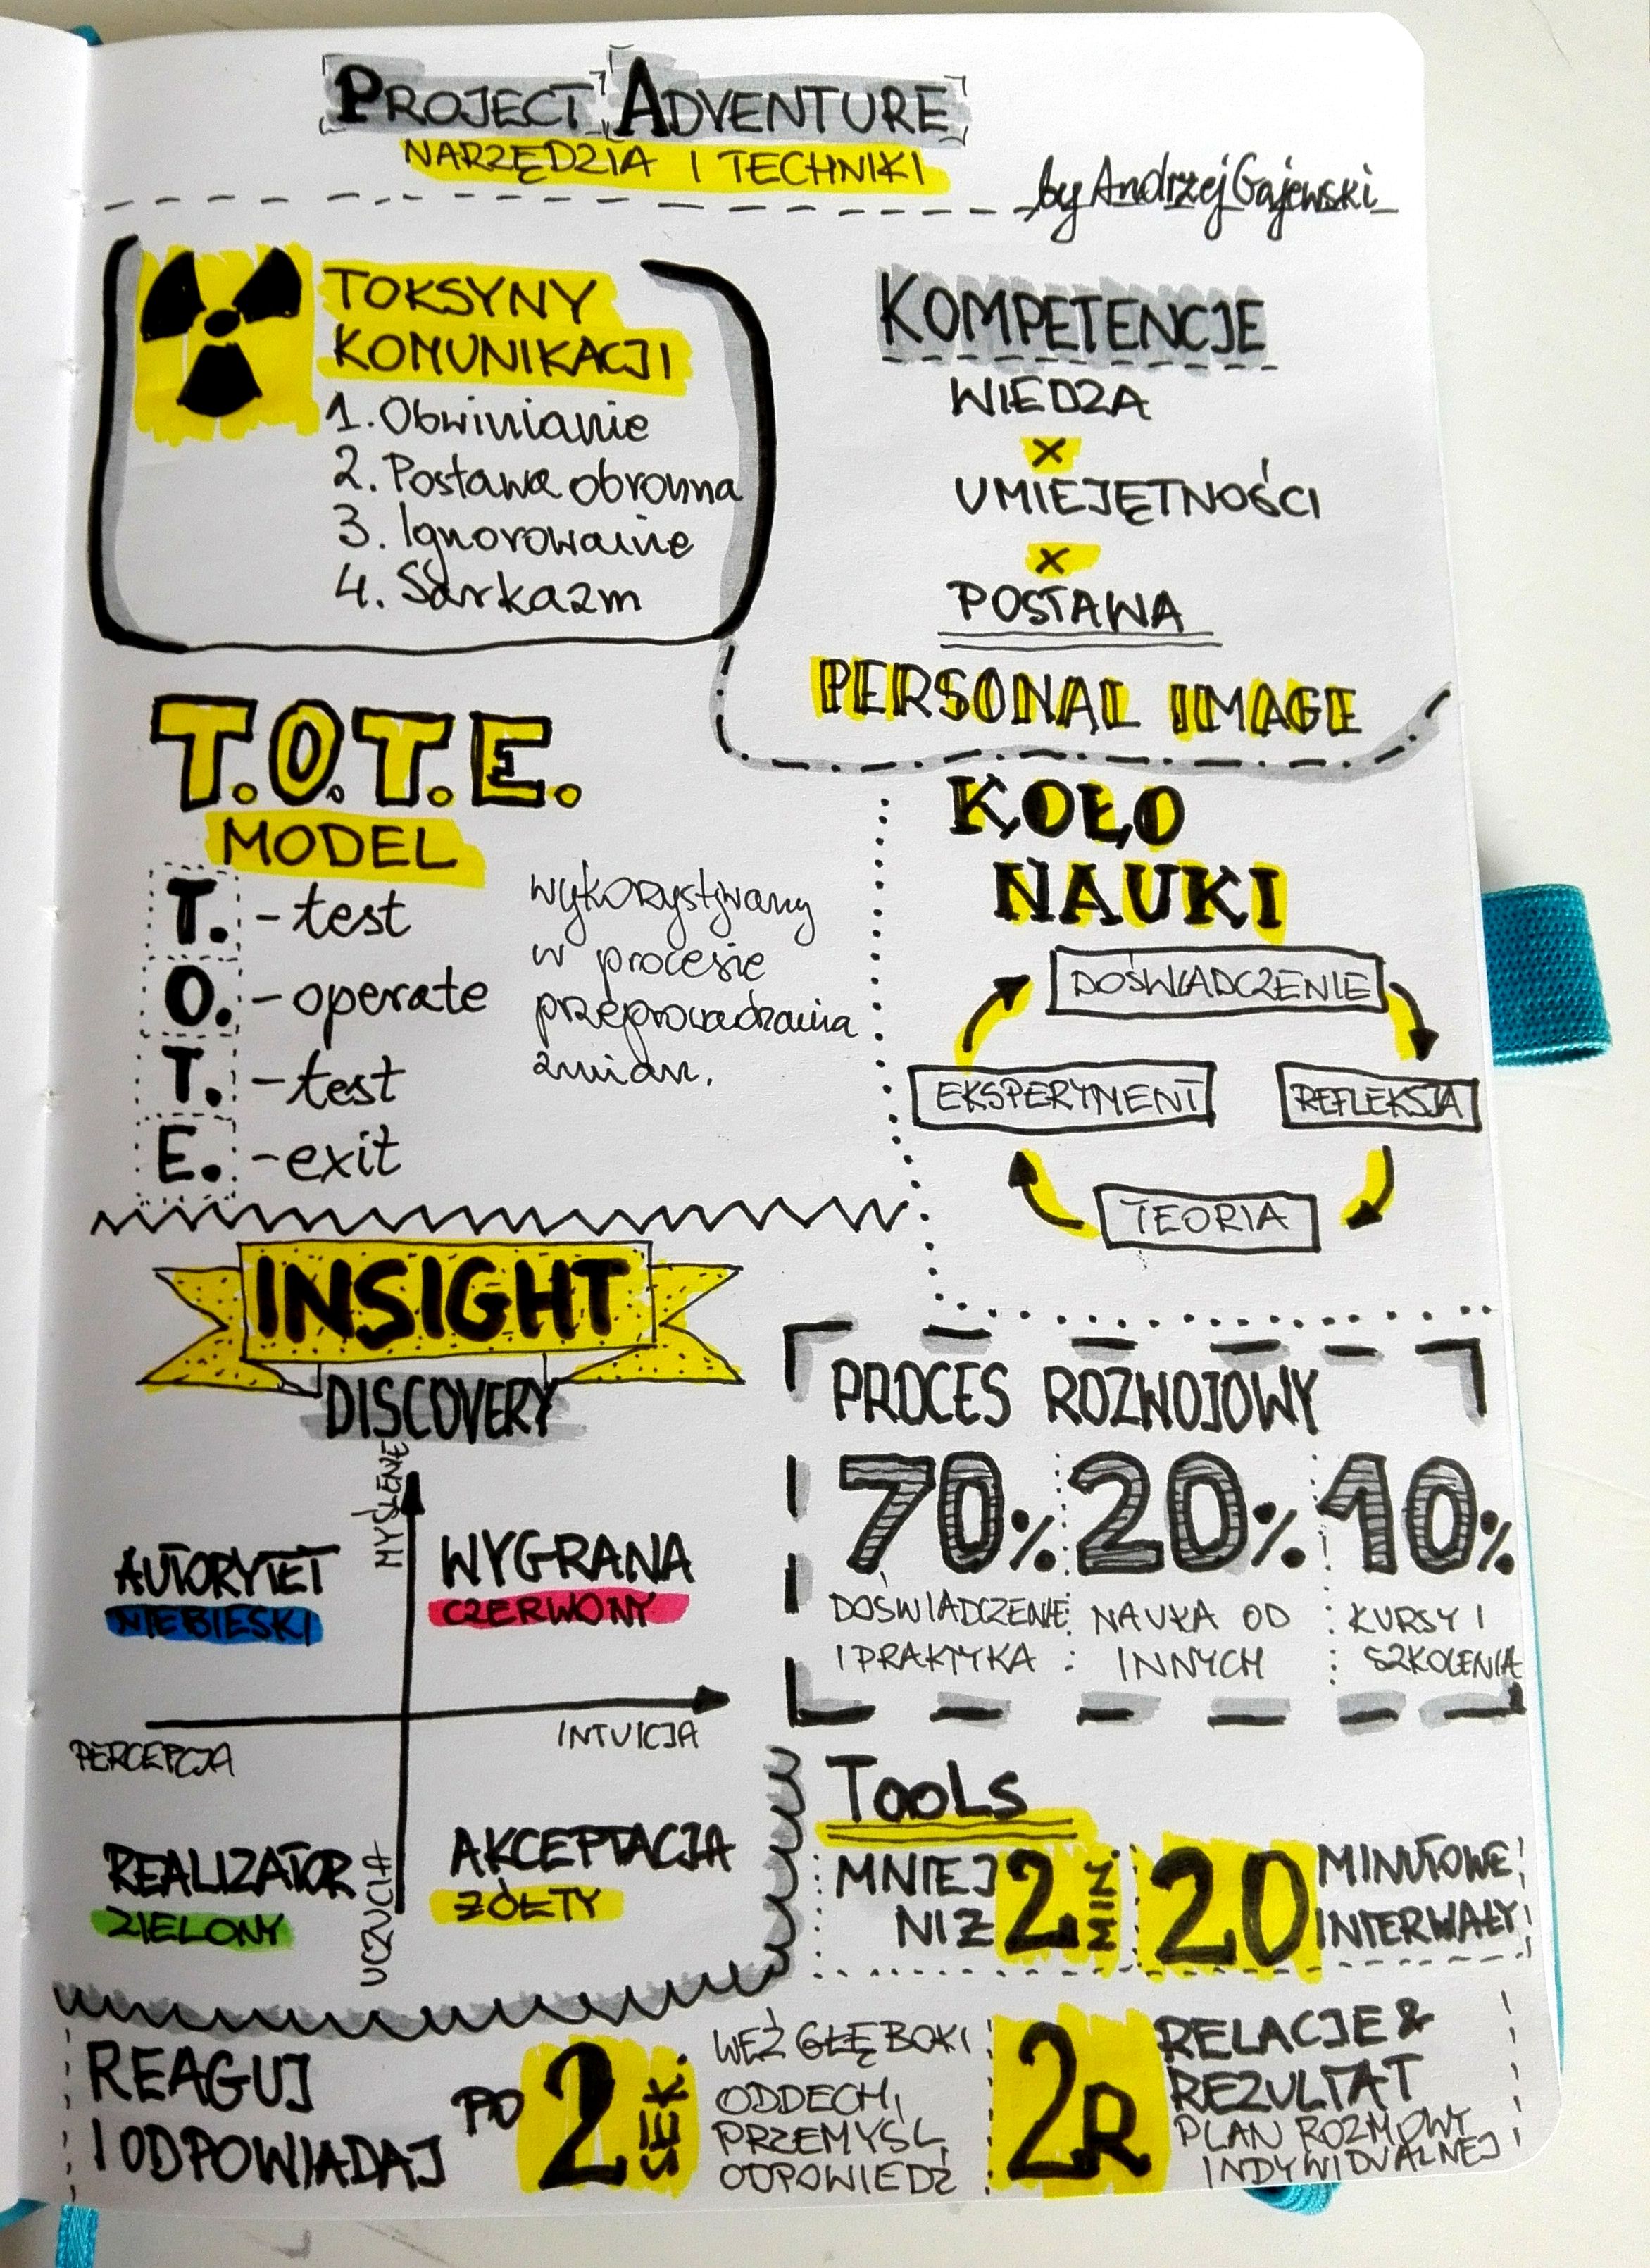 PROJECT ADVENTURE
NARZĘDZIA I TECHNIKI
by Andrzej Gajewski
TOKSYNY
KOMUNIKACJI
1. Obwinianie
2. Postawa obronna
3. Ignorowanie
4. Sarkazm
KOMPETENCJE
WIEDZA
x
UMIEJĘTNOŚCI
x
POSTAWA
PERSONAL IMAGE
T.O.T.E.
MODEL
T. - test
O. - operate
T. - test
E. - exit
wykorzystywany
w procesie
przeprowadzania
zmian.
KOŁO
NAUKI
DOŚWIADCZENIE
EKSPERYMENT
REFLEKSJA
TEORIA
INSIGHT
DISCOVERY
MYŚLENIE
AUTORYTET
NIEBIESKI
WYGRANA
CZERWONY
PERCEPCJA
INTUICJA
REALIZATOR
ZIELONY
UCZUCIA
AKCEPTACJA
ŻÓŁTY
PROCES ROZWOJOWY
70% 20% 10%
DOŚWIADCZENIE
I PRAKTYKA
NAUKA OD
INNYCH
KURSY I
SZKOLENIA
TOOLS
MNIEJ
NIZ
2 MIN.
20
MINUTOWE
INTERWAŁY
REAGUJ
I ODPOWIADAJ
PO 2 SEK.
WEŹ GŁĘBOKI
ODDECH,
PRZEMYŚL
ODPOWIEDŹ
2R
RELACJE &
REZULTAT
PLAN ROZMOWY
INDYWIDUALNEJ